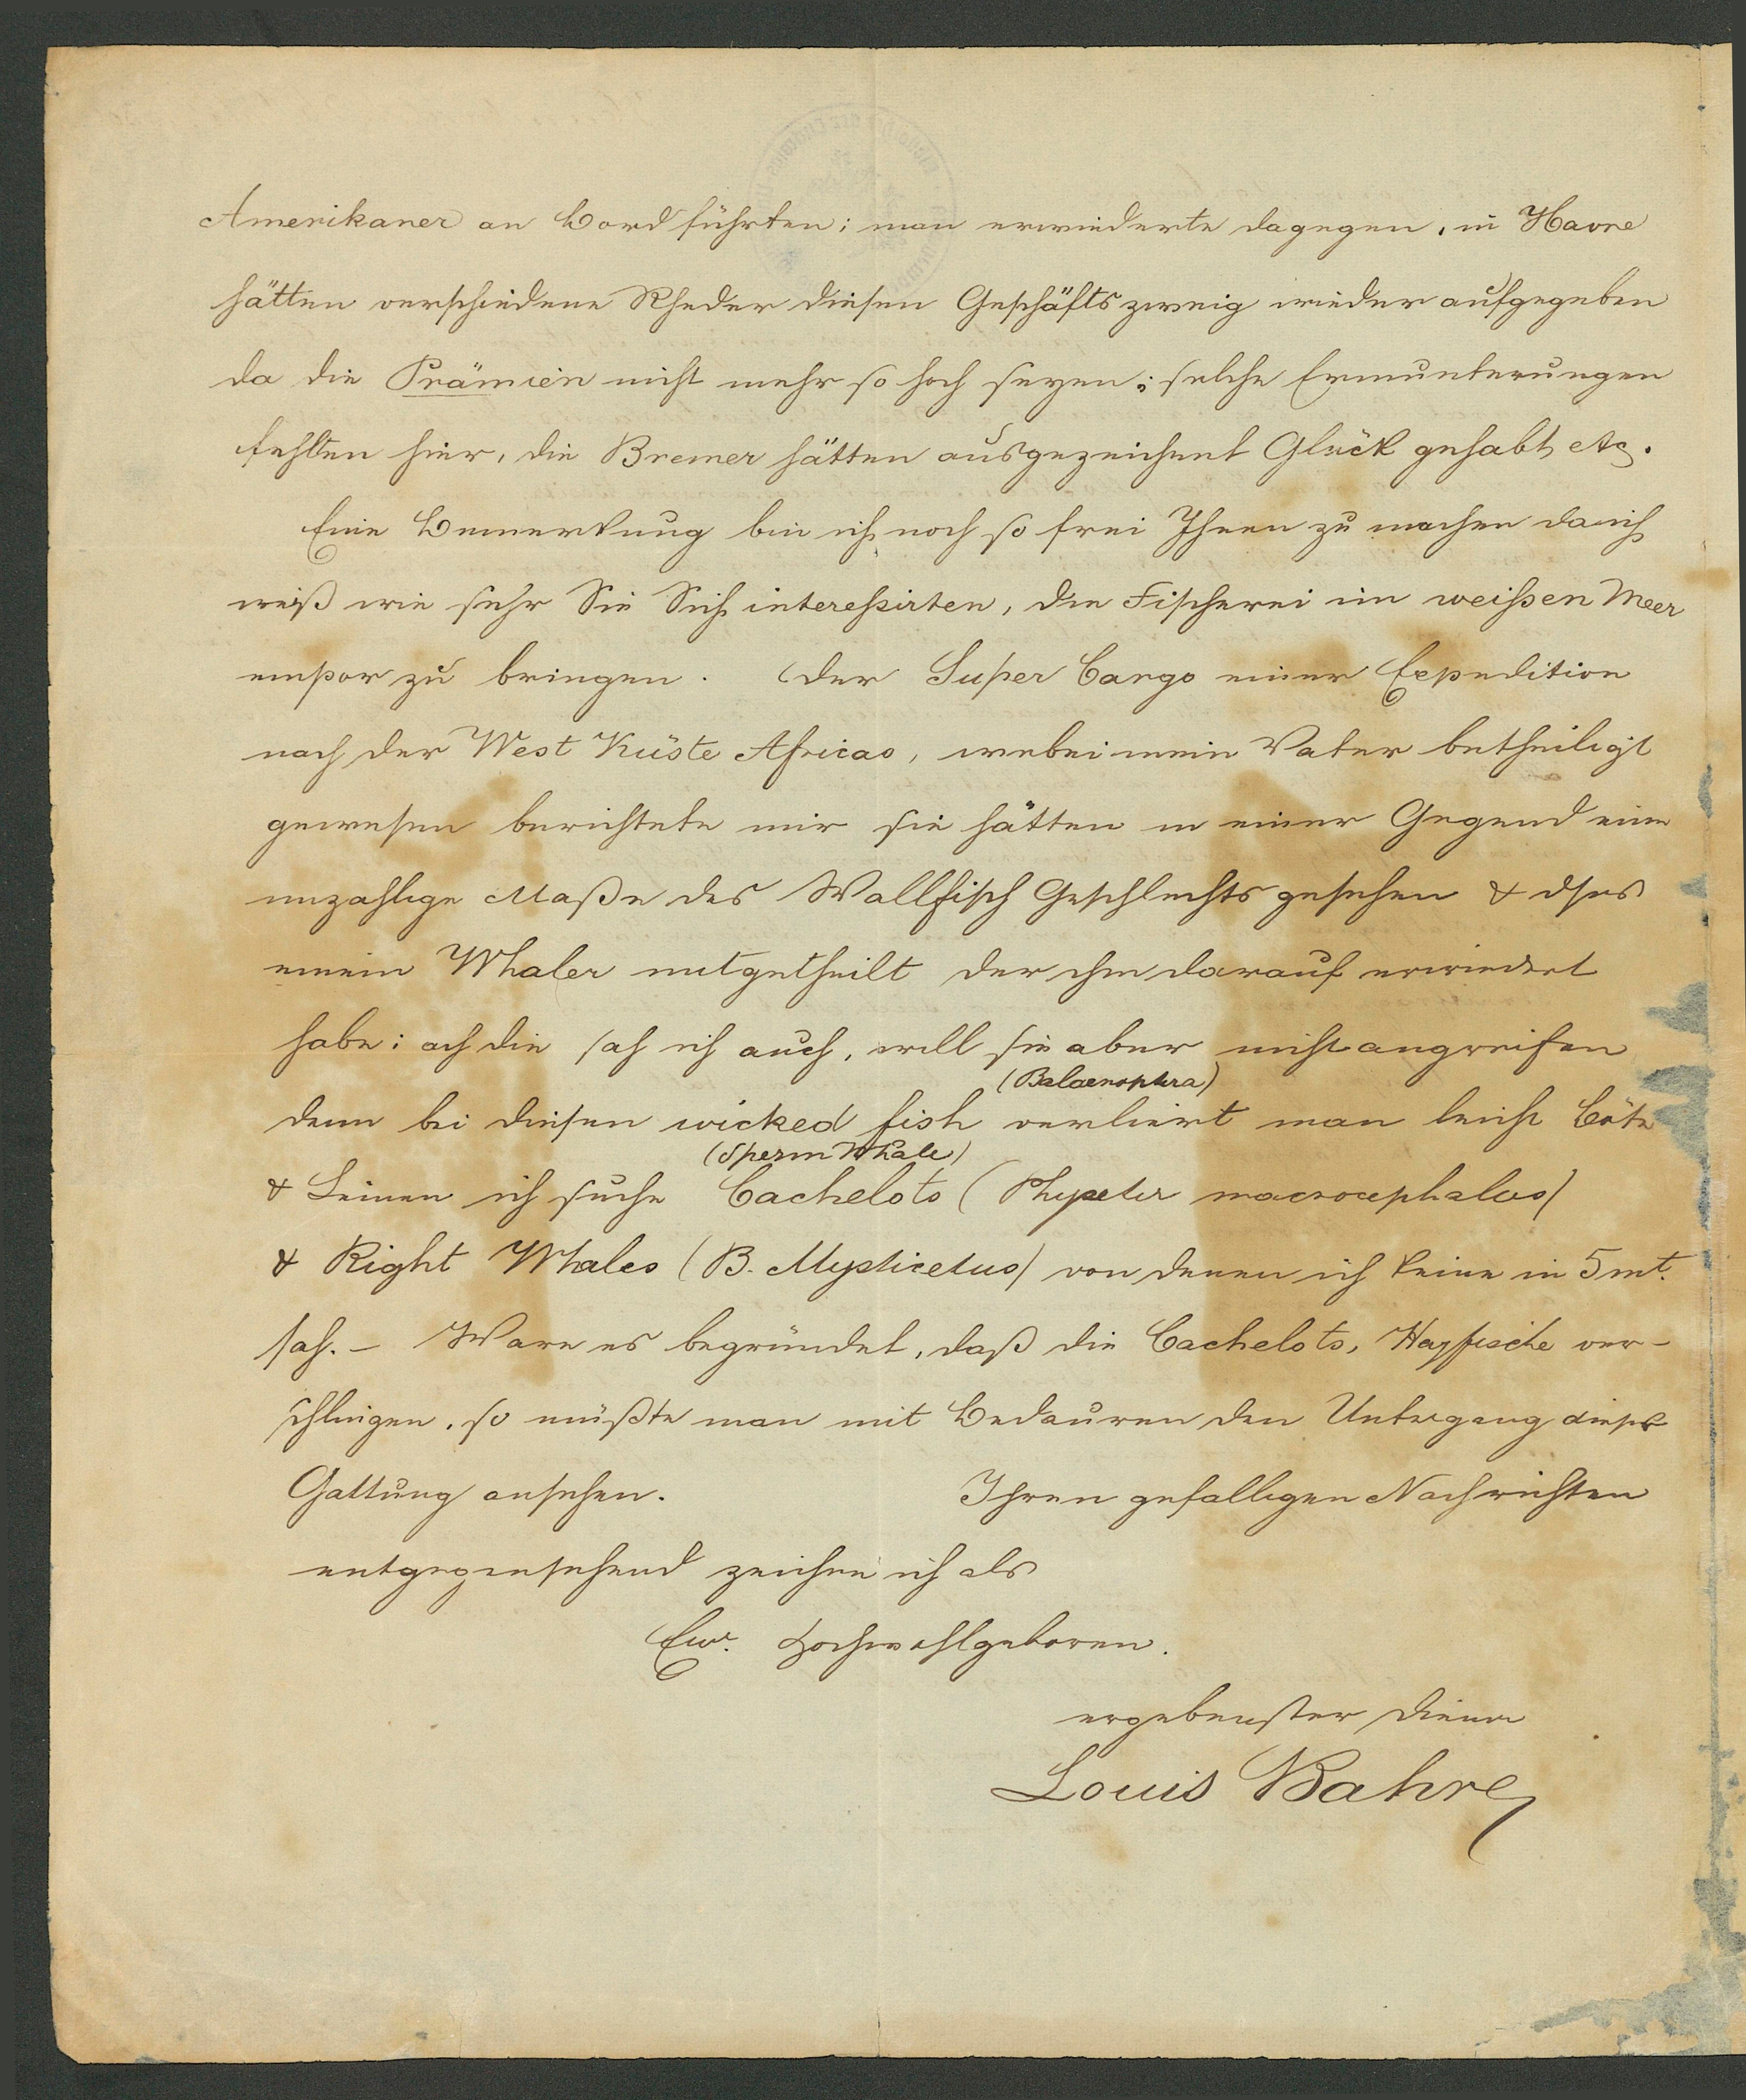 Amerikaner an Bord führten; man erwiederte dagegen, in Havre
hätten verschiedene Rheder diesen Geschäftszweig wieder aufgegeben
da die Prämien nicht mehr so hoch seyen; solche Ermunterungen
fehlten hier, die Bremer hätten ausgezeichnet Glück gehabt etc.
Eine Bemerkung bin ich noch so frei Ihnen zu machen da ich
weiß wie sehr Sie Sich interessirten, die Fischerei im weissen Meer
empor zu bringen. Der Super Cargo einer Expedition
nach der West Küste Africas, wobei mein Vater betheiligt
gewesen berichtete mir sie hätten in einer Gegend eine
unzahlige Maße des Wallfisch Geschlechts gesehen & dses
einem Whaler mitgetheilt der ihm darauf erwiedert
habe: ach die sah ich auch, will sie aber nicht angreifen
(Balaenoptera)
denn bei diesen wicked fish verliert man leicht Böte
(Sperm Whale)
& Leinen ich suche Cachelots (Physeter macrocephalus)
& Right Whales (B. Mysticetus) von denen ich keine in 5 mt.
sah. – Ware es begründet, daß die Cachelots, Hayfische ver-
schlingen, so müßte man mit Bedauren den Untergang dieser
Gattung ansehen. Ihren gefalligen Nachrichten
entgegensehend zeichne ich als
Ew. Hochwohlgeboren.
ergebenster Diener
Louis Bahre